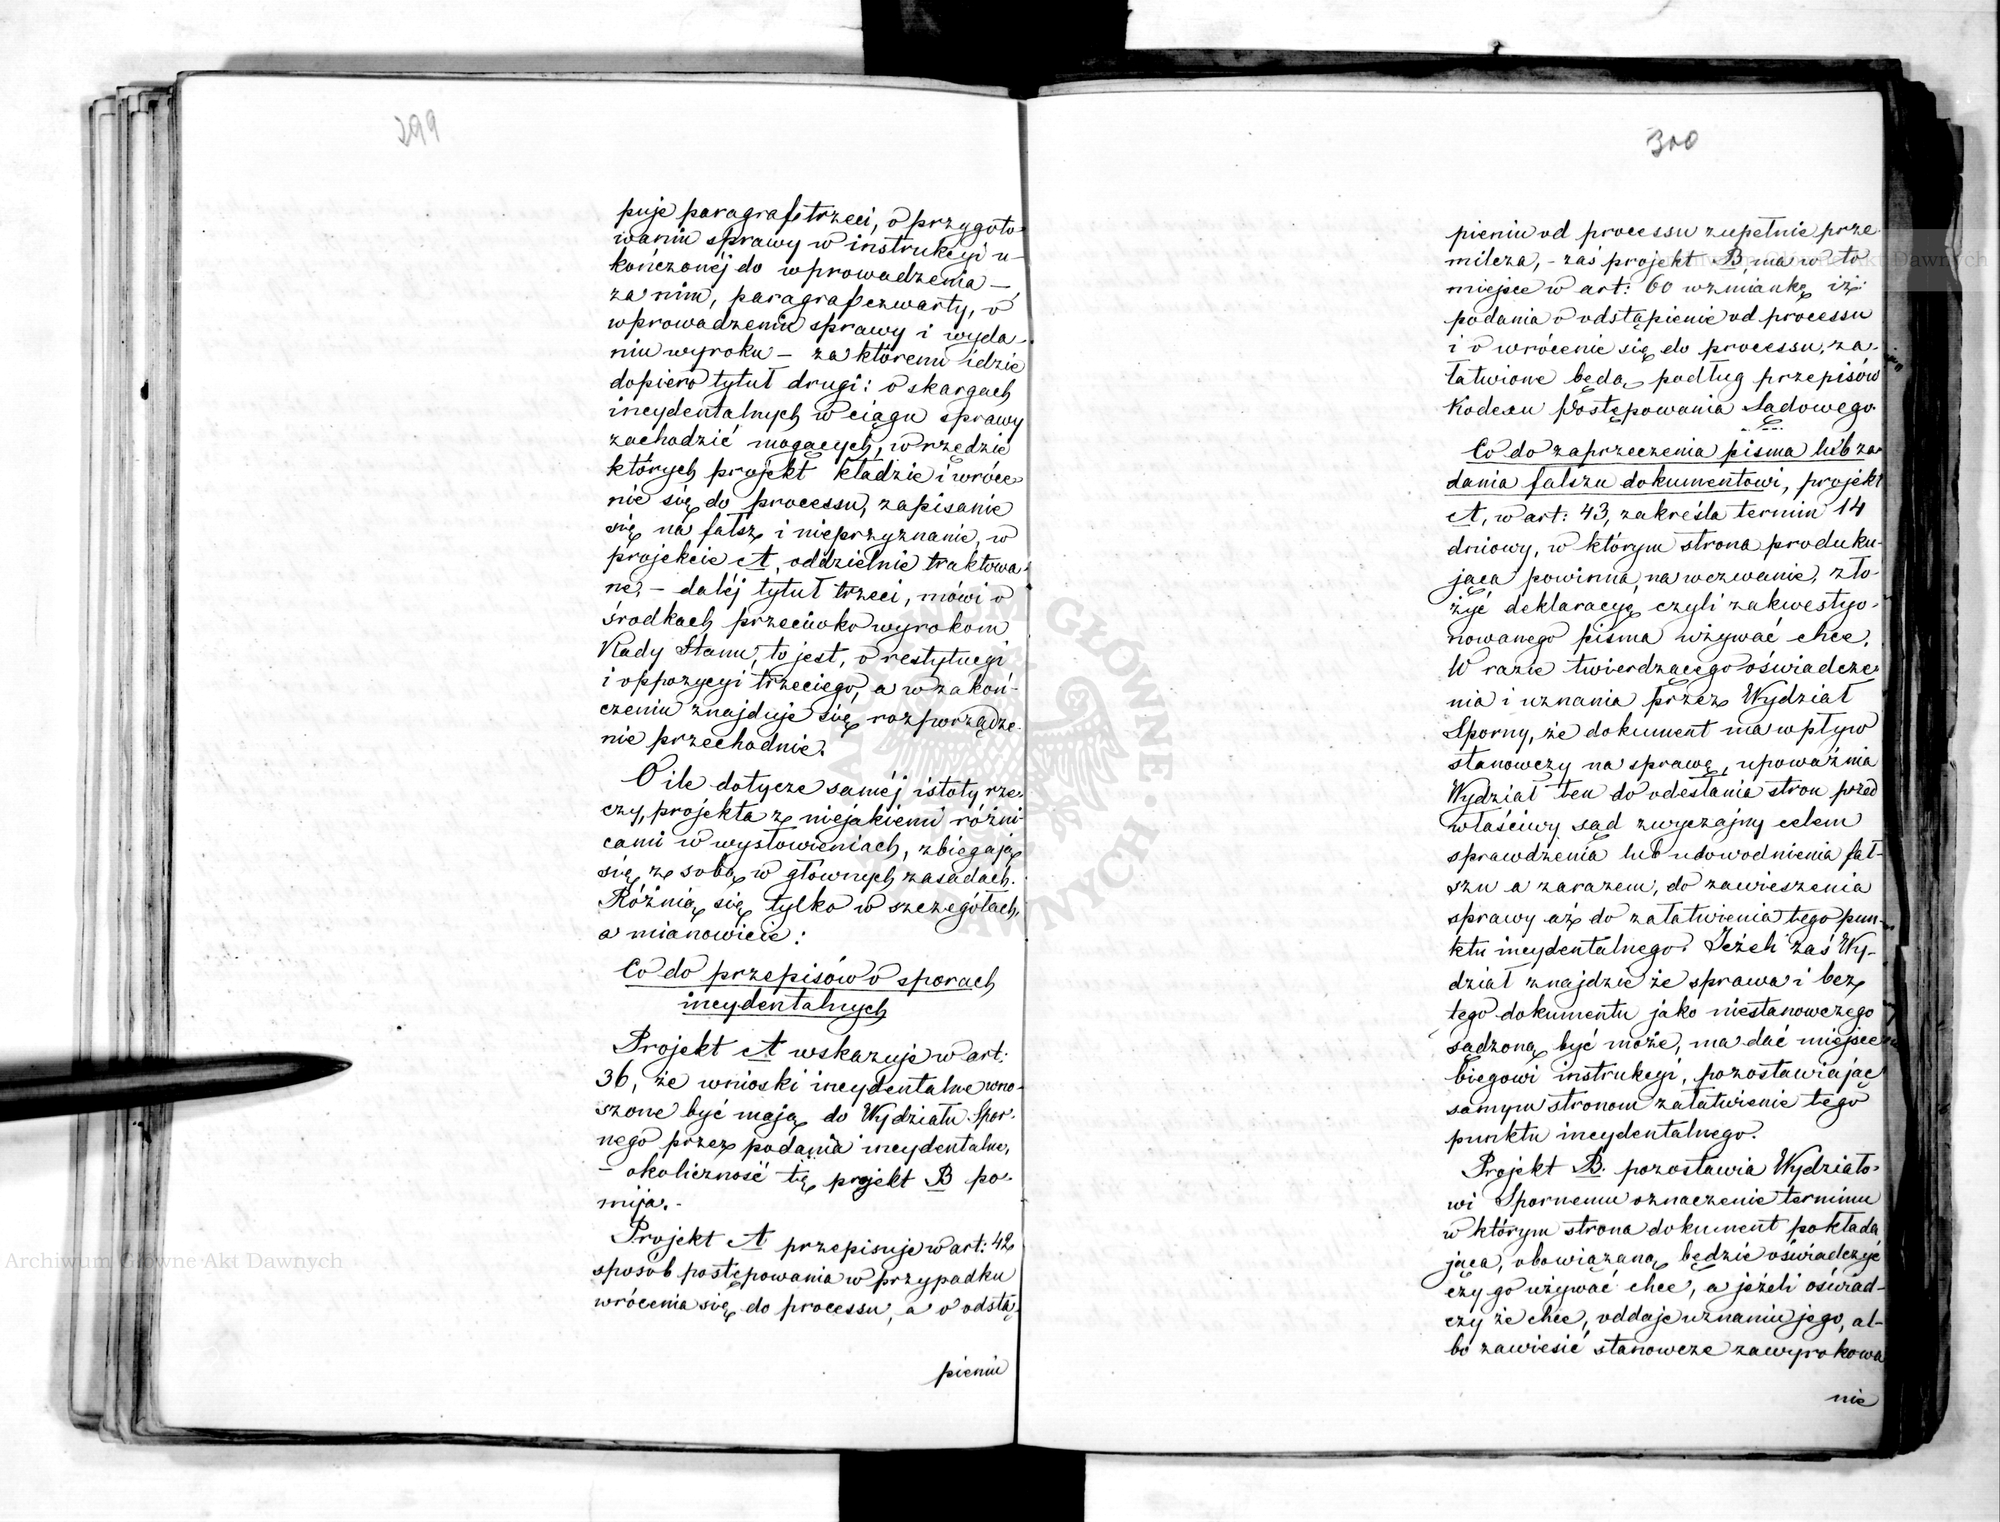 299
puje paragraf trzeci, o przygoto-
waniu sprawy w instrukcyi u-
kończonéj do wprowadzenia —
za nim, paragraf czwarty, o
wprowadzeniu sprawy i wyda-
niu wyroku — za któremi idzie
dopiero tytuł drugi: o skargach
incydentalnych w ciągu sprawy
zachodzić mogących, w rzędzie
których projekt kładzie i wróce-
nie się do processu, zapisanie
się na fałsz i nieprzyznanie, w
projekcie A, oddzielnie traktowa-
ne, — daléj tytuł trzeci, mówi o
środkach przeciwko wyrokom
Rady Stanu, to jest, o restytucyi
i oppozycyi trzeciego, a w zakoń-
czeniu znajduje się rozporządze-
nie przechodnie.
O ile dotycze saméj istoty rze-
czy, projekta z niejakiemi różni-
cami w wysłowieniach, zbiegają
się ze sobą w głównych zasadach.
Różnią się tylko w szczegółach,
a mianowicie:
Co do przepisów o sporach
incydentalnych
Projekt A wskazuje w art:
36, że wnioski incydentalne wno-
szone być mają do Wydziału Spor-
nego przez podania incydentalne,
— okoliczność tę projekt B po-
mija. -
Projekt A przepisuje w art: 42
sposób postępowania w przypadku
wrócenia się do processu, a o odstą-
pieniu
300
pieniu od processu zupełnie prze-
milcza, - zaś projekt B, ma w to
miejsce w art: 60 wzmiankę iż
podania o odstąpienie od processu
i o wrócenie się do processu, za-
łatwione będą podług przepisów
Kodexu Postępowania Sądowego.
Co do zaprzeczenia pisma lub za-
dania fałszu dokumentowi, projekt
A, w art: 43, zakreśla termin 14
dniowy, w którym strona produku-
jąca powinna, na wezwanie, zło-
żyć deklaracyę czyli zakwestyo-
nowanego pisma używać chce.
W razie twierdzącego oświadcze-
nia i uznania przez Wydział
Sporny, że dokument ma wpływ
stanowczy na sprawę, upoważnia
Wydział ten do odesłania stron przed
właściwy sąd zwyczajny celem
sprawdzenia lub udowodnienia fał-
szu a zarazem, do zawieszenia
sprawy aż do załatwienia tego pun-
ktu incydentalnego. Jeżeli zaś Wy-
dział znajdzie że sprawa i bez
tego dokumentu jako niestanowczego
sądzoną być może, ma dać miejsce
biegowi instrukcyi, pozostawiając
samym stronom załatwienie tego
punktu incydentalnego.
Projekt B. pozostawia Wydziało-
wi Spornemu oznaczenie terminu
w którym strona dokument pokłada-
jąca, obowiązaną będzie oświadczyć
czy go używać chce, a jeżeli oświad-
czy że chce, oddaje uznaniu jego, al-
bo zawiesić stanowcze zawyrokowa
nie
Archiwum Główne Akt Dawnych